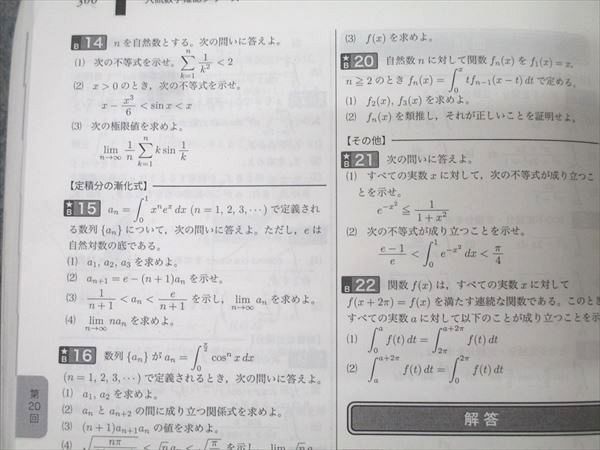 300
B 14 nを自然数とする。次の問いに答えよ。
(1) 次の不等式を示せ。\sum_{k=1}^{n} \frac{1}{k^2} < 2
(2) x > 0 のとき,次の不等式を示せ。
x - \frac{x^3}{6} < \sin x < x
(3) 次の極限値を求めよ。
\lim_{n→∞} \frac{1}{n} \sum_{k=1}^{n} k \sin \frac{1}{k}
【定積分の漸化式】
★B 15 a_n = \int_0^1 x^n e^x dx (n = 1, 2, 3, ···) で定義され
る数列 {a_n} について,次の問いに答えよ。ただし,e は
自然対数の底である。
(1) a_1, a_2, a_3 を求めよ。
(2) a_{n+1} = e - (n+1)a_n を示せ。
(3) \frac{1}{n+1} < a_n < \frac{e}{n+1} を示し,\lim_{n→∞} a_n を求めよ。
(4) \lim_{n→∞} na_n を求めよ。
★B 16 数列 {a_n} が a_n = \int_0^{\frac{π}{2}} \cos^n x dx
(n = 1, 2, 3, ···) で定義されるとき,次の問いに答えよ。
(1) a_1, a_2 を求めよ。
(2) a_n と a_{n+2} の間に成り立つ関係式を求めよ。
(3) (n+1)a_{n+1}a_n の値を求めよ。
(4)
を示し,
第20回
(3) f(x) を求めよ。
★B 20 自然数 n に対して関数 f_n(x) を f_1(x) = x,
n ≧ 2 のとき f_n(x) = \int_0^x tf_{n-1}(x-t) dt で定める。
(1) f_2(x), f_3(x) を求めよ。
(2) f_n(x) を類推し,それが正しいことを証明せよ。
【その他】
★B 21 次の問いに答えよ。
(1) すべての実数 x に対して,次の不等式が成り立つこ
とを示せ。
e^{-x^2} ≦ \frac{1}{1+x^2}
(2) 次の不等式が成り立つことを示せ。
\frac{e-1}{e} < \int_0^1 e^{-x^2} dx < \frac{π}{4}
B 22 関数 f(x) は,すべての実数 x に対して
f(x+2π) = f(x) を満たす連続な関数である。このとき
すべての実数 a に対して以下のことが成り立つことを示
(1) \int_0^a f(t) dt = \int_{2π}^{a+2π} f(t) dt
(2) \int_a^{a+2π} f(t) dt = \int_0^{2π} f(t) dt
解答